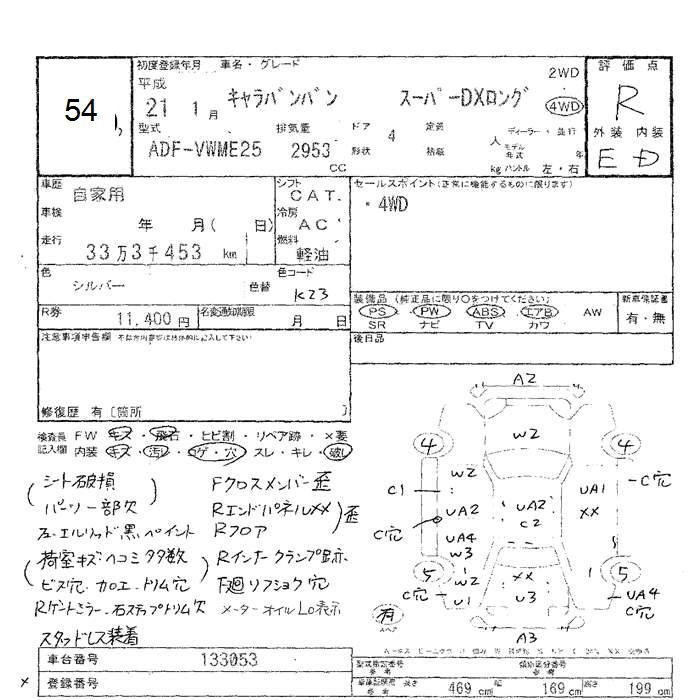 54
初度登録年月 車名・グレード
平成
21 1月 キャラバンバン スーパーDXロング
2WD
4WD
評価点
R
外装 内装
E D
型式 排気量 ドア 4 定員 人 ディーラー・並行
ADF-VWME25 2953 CC
形状 格納 kg ハンドル 左・右
モデル年式 年
車歴 自家用
シフト CAT.
車検 年 月( 日)
冷房 AC
走行 33万3千453 km
燃料 軽油
色 シルバー 色替
色コード K23
R券 11,400円
名変通知期限 月 日
セールスポイント(正常に機能するものに限ります)
・4WD
装備品(純正品に限り○をつけてください)
PS PW ABS エアB AW
SR ナビ TV カワ
新車保証書
有・無
後日品
注意事項申告欄
修復歴 有〔箇所 〕
検査員記入欄
FW キズ・飛石・ヒビ割・リペア跡・×要
内装 キズ・汚レ・コゲ・穴・スレ・キレ・破レ
シート破損
パーツ一部欠
フューエルリッド黒ペイント
荷室キズヘコミ多数
ビス穴.加工.トリム穴
Rゲートミラー.右ステップトリム欠
スタッドレス装着
Fクロスメンバー歪
RエンドパネルXX
Rフロア
歪
Rインナークランプ跡
下廻りフショク穴
メーターオイルLo表示
A2
4
W2
4
C1
W2
UA2
C穴
UA4
W3
UA2
C2
UA1
XX
C穴
5
W2
U1
C穴
XX
U3
5
UA4
C穴
有
A3
車台番号 133053
登録番号
型式指定番号
類別区分番号
参考
長さ 469 cm 幅 169 cm 高さ 199 cm